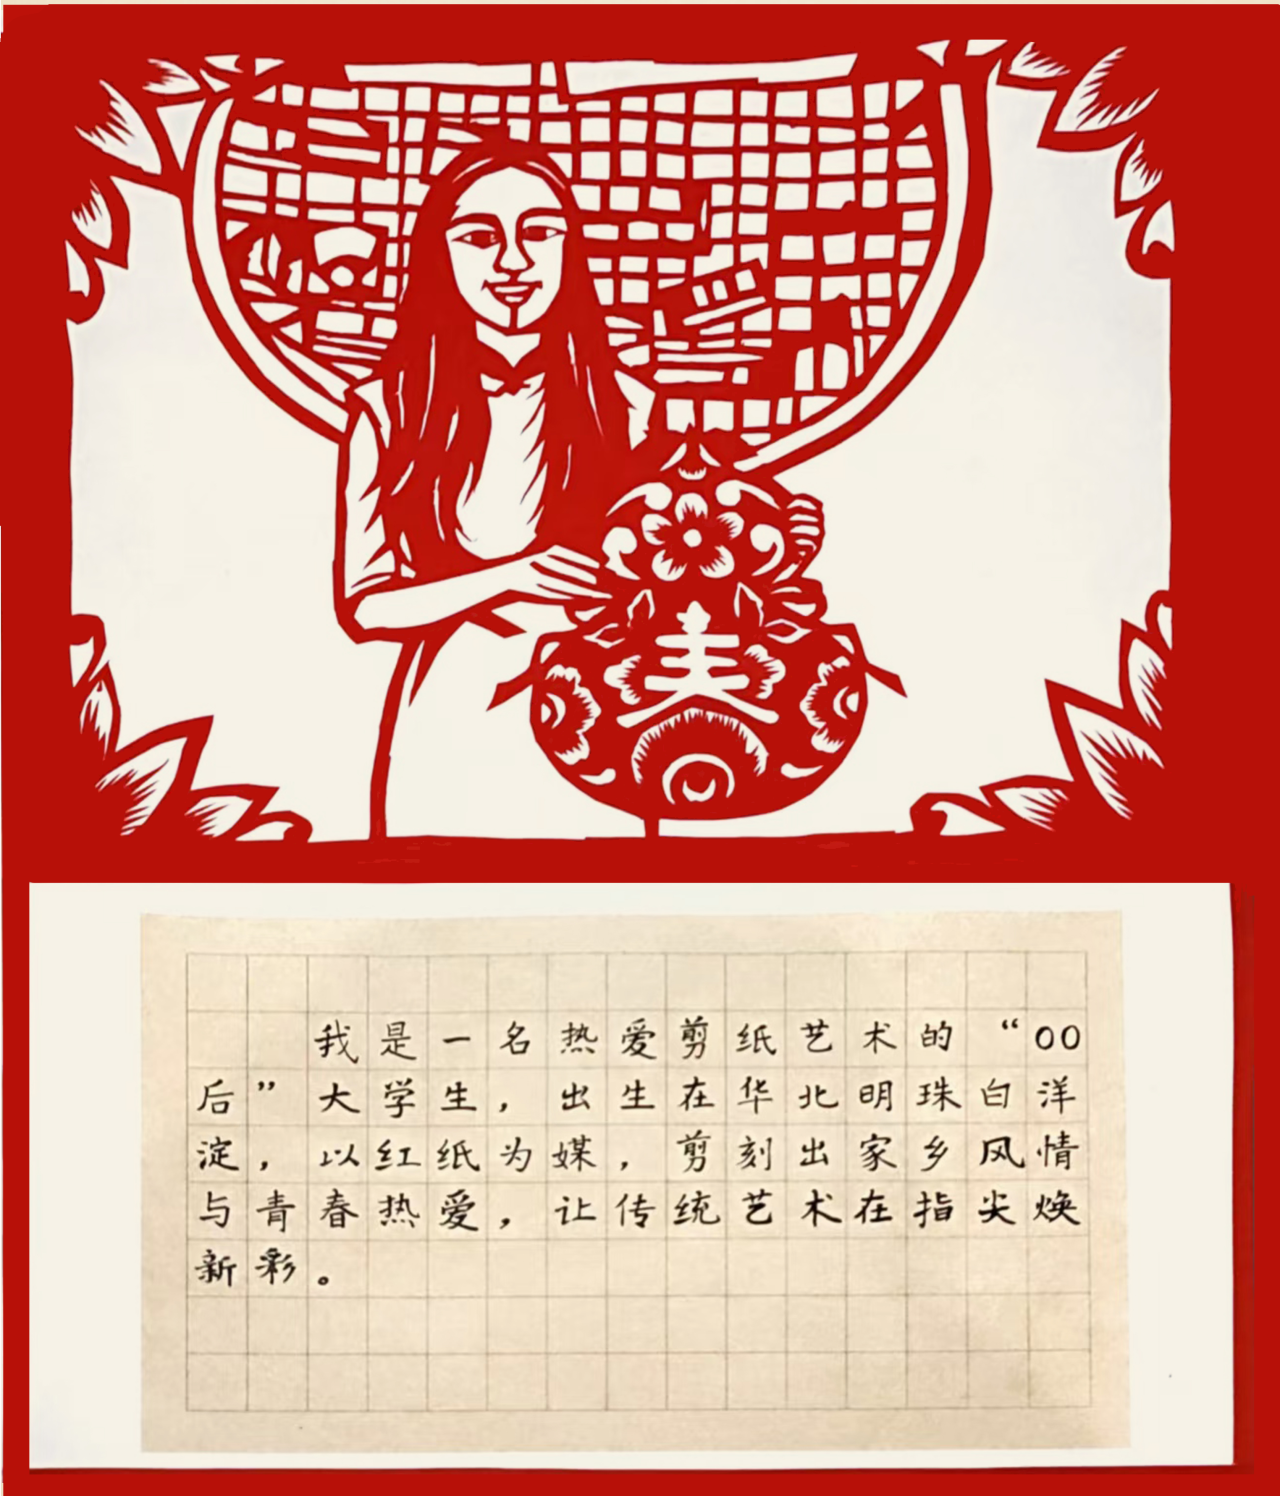 我是一名热爱剪纸艺术的“00
后”大学生，出生在华北明珠白洋
淀，以红纸为媒，剪刻出家乡风情
与青春热爱，让传统艺术在指尖焕
新彩。